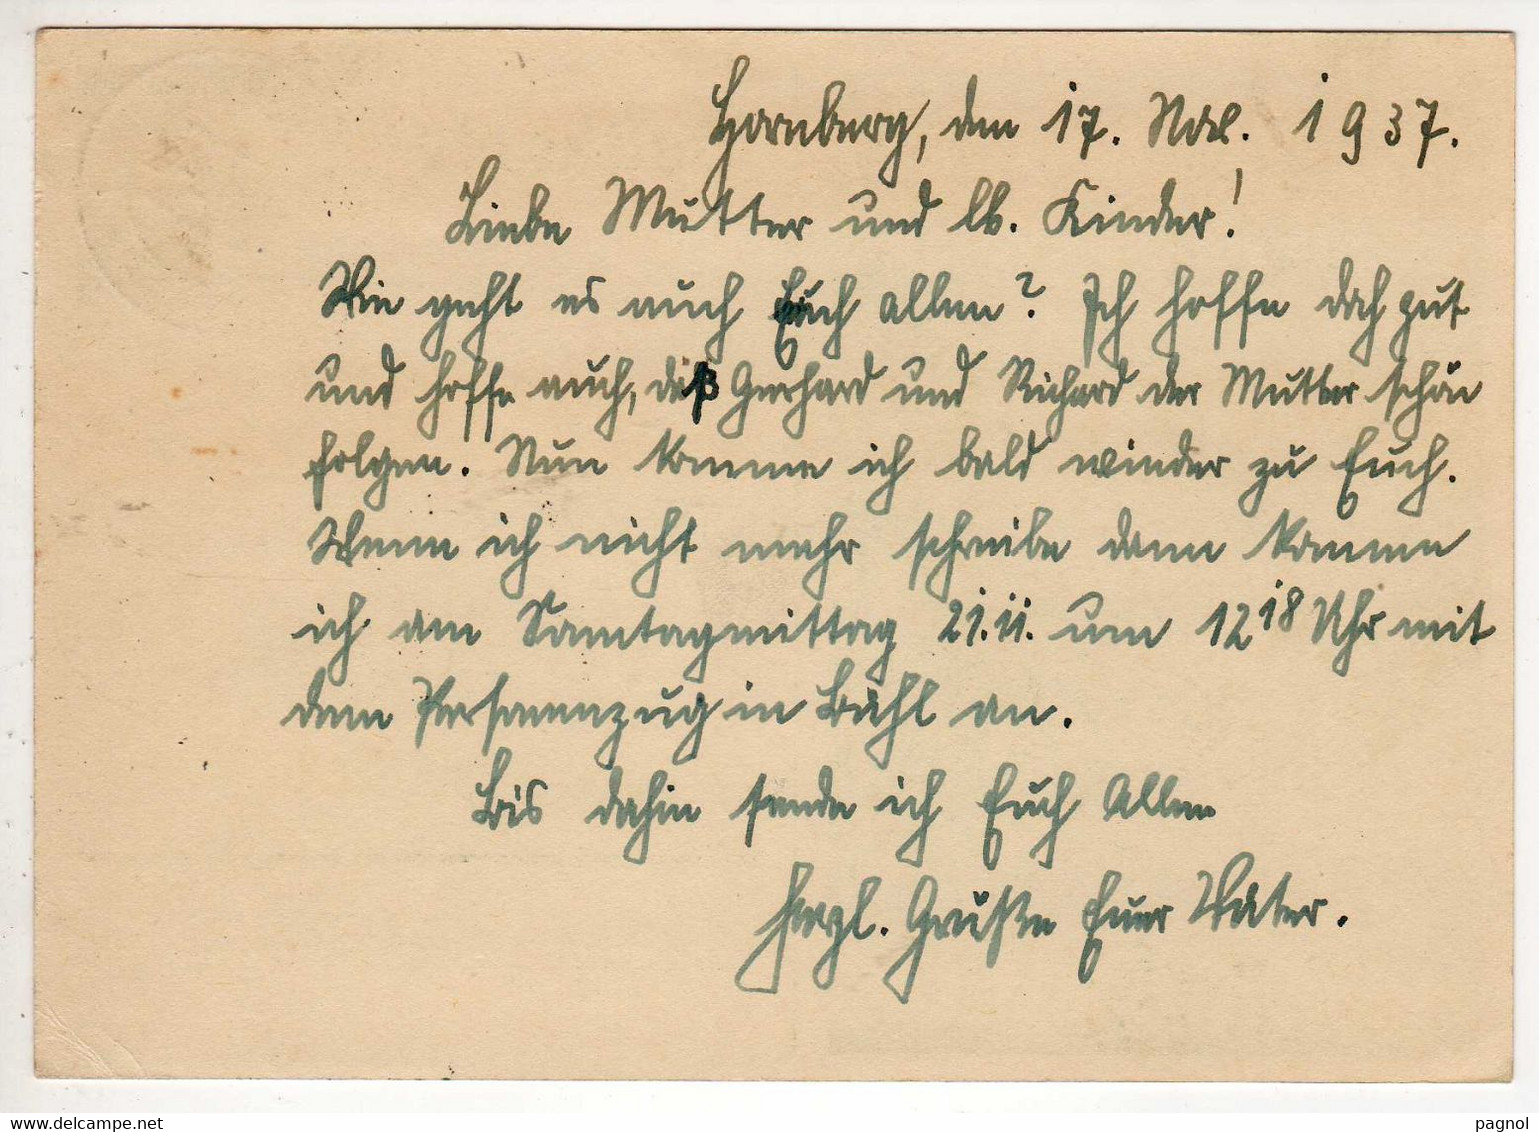 Hornberg, den 17. Nov. 1937.
Liebe Mutter und lb. Kinder!
Wie geht es auch Euch allen? Ich hoffe doch gut
und hoffe auch, daß Gerhard und Richard der Mutter schön
folgen. Nun komme ich bald wieder zu Euch.
Wenn ich nicht mehr schreibe dann komme
ich am Samtagmittag 21.11. um 12 18 Uhr mit
dem Personenzug in Bühl an.
Bis dahin sende ich Euch Allen
herzl. Grüße Euer Vater.
pagnol
www.delcampe.net